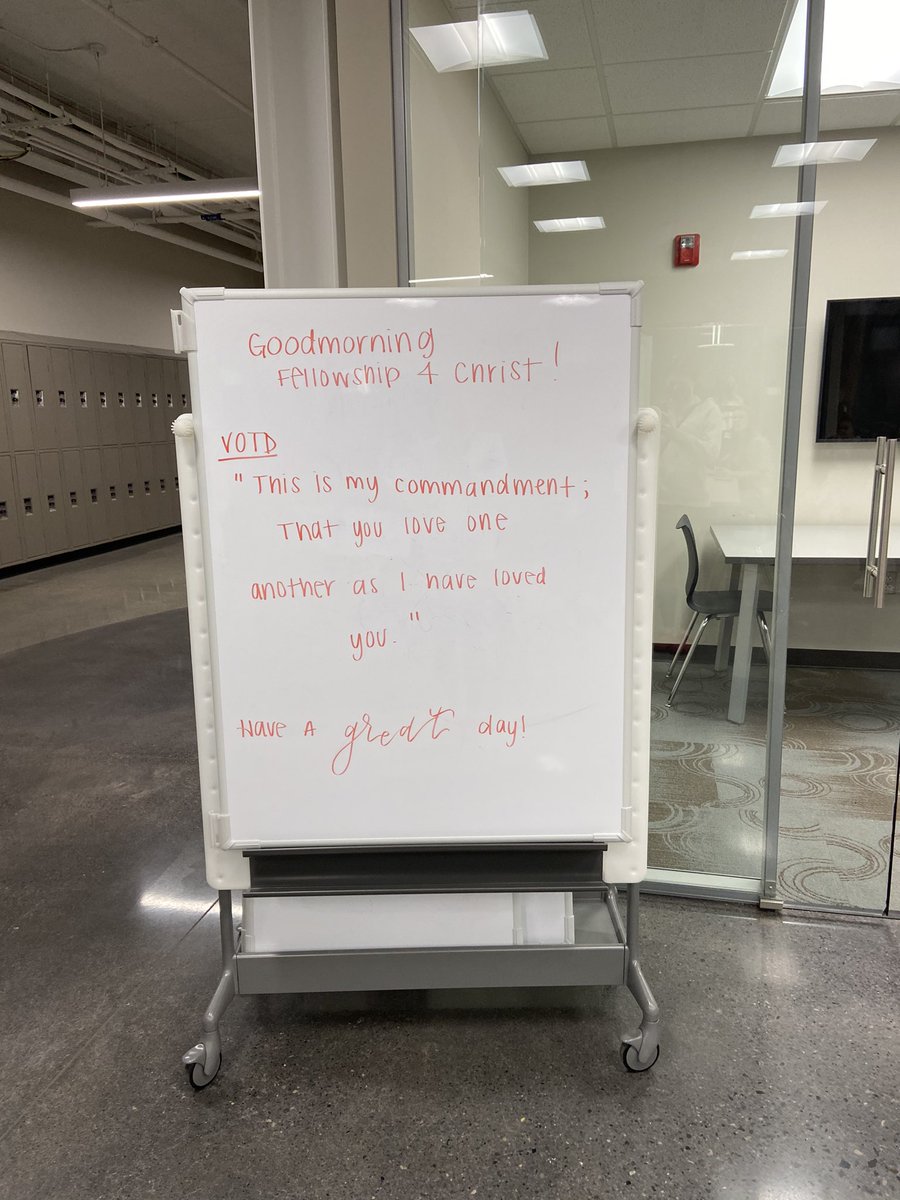 Goodmorning
Fellowship 4 Christ!
VOTD
"This is my commandment;
That you love one
another as I have loved
you."
Have A great day!